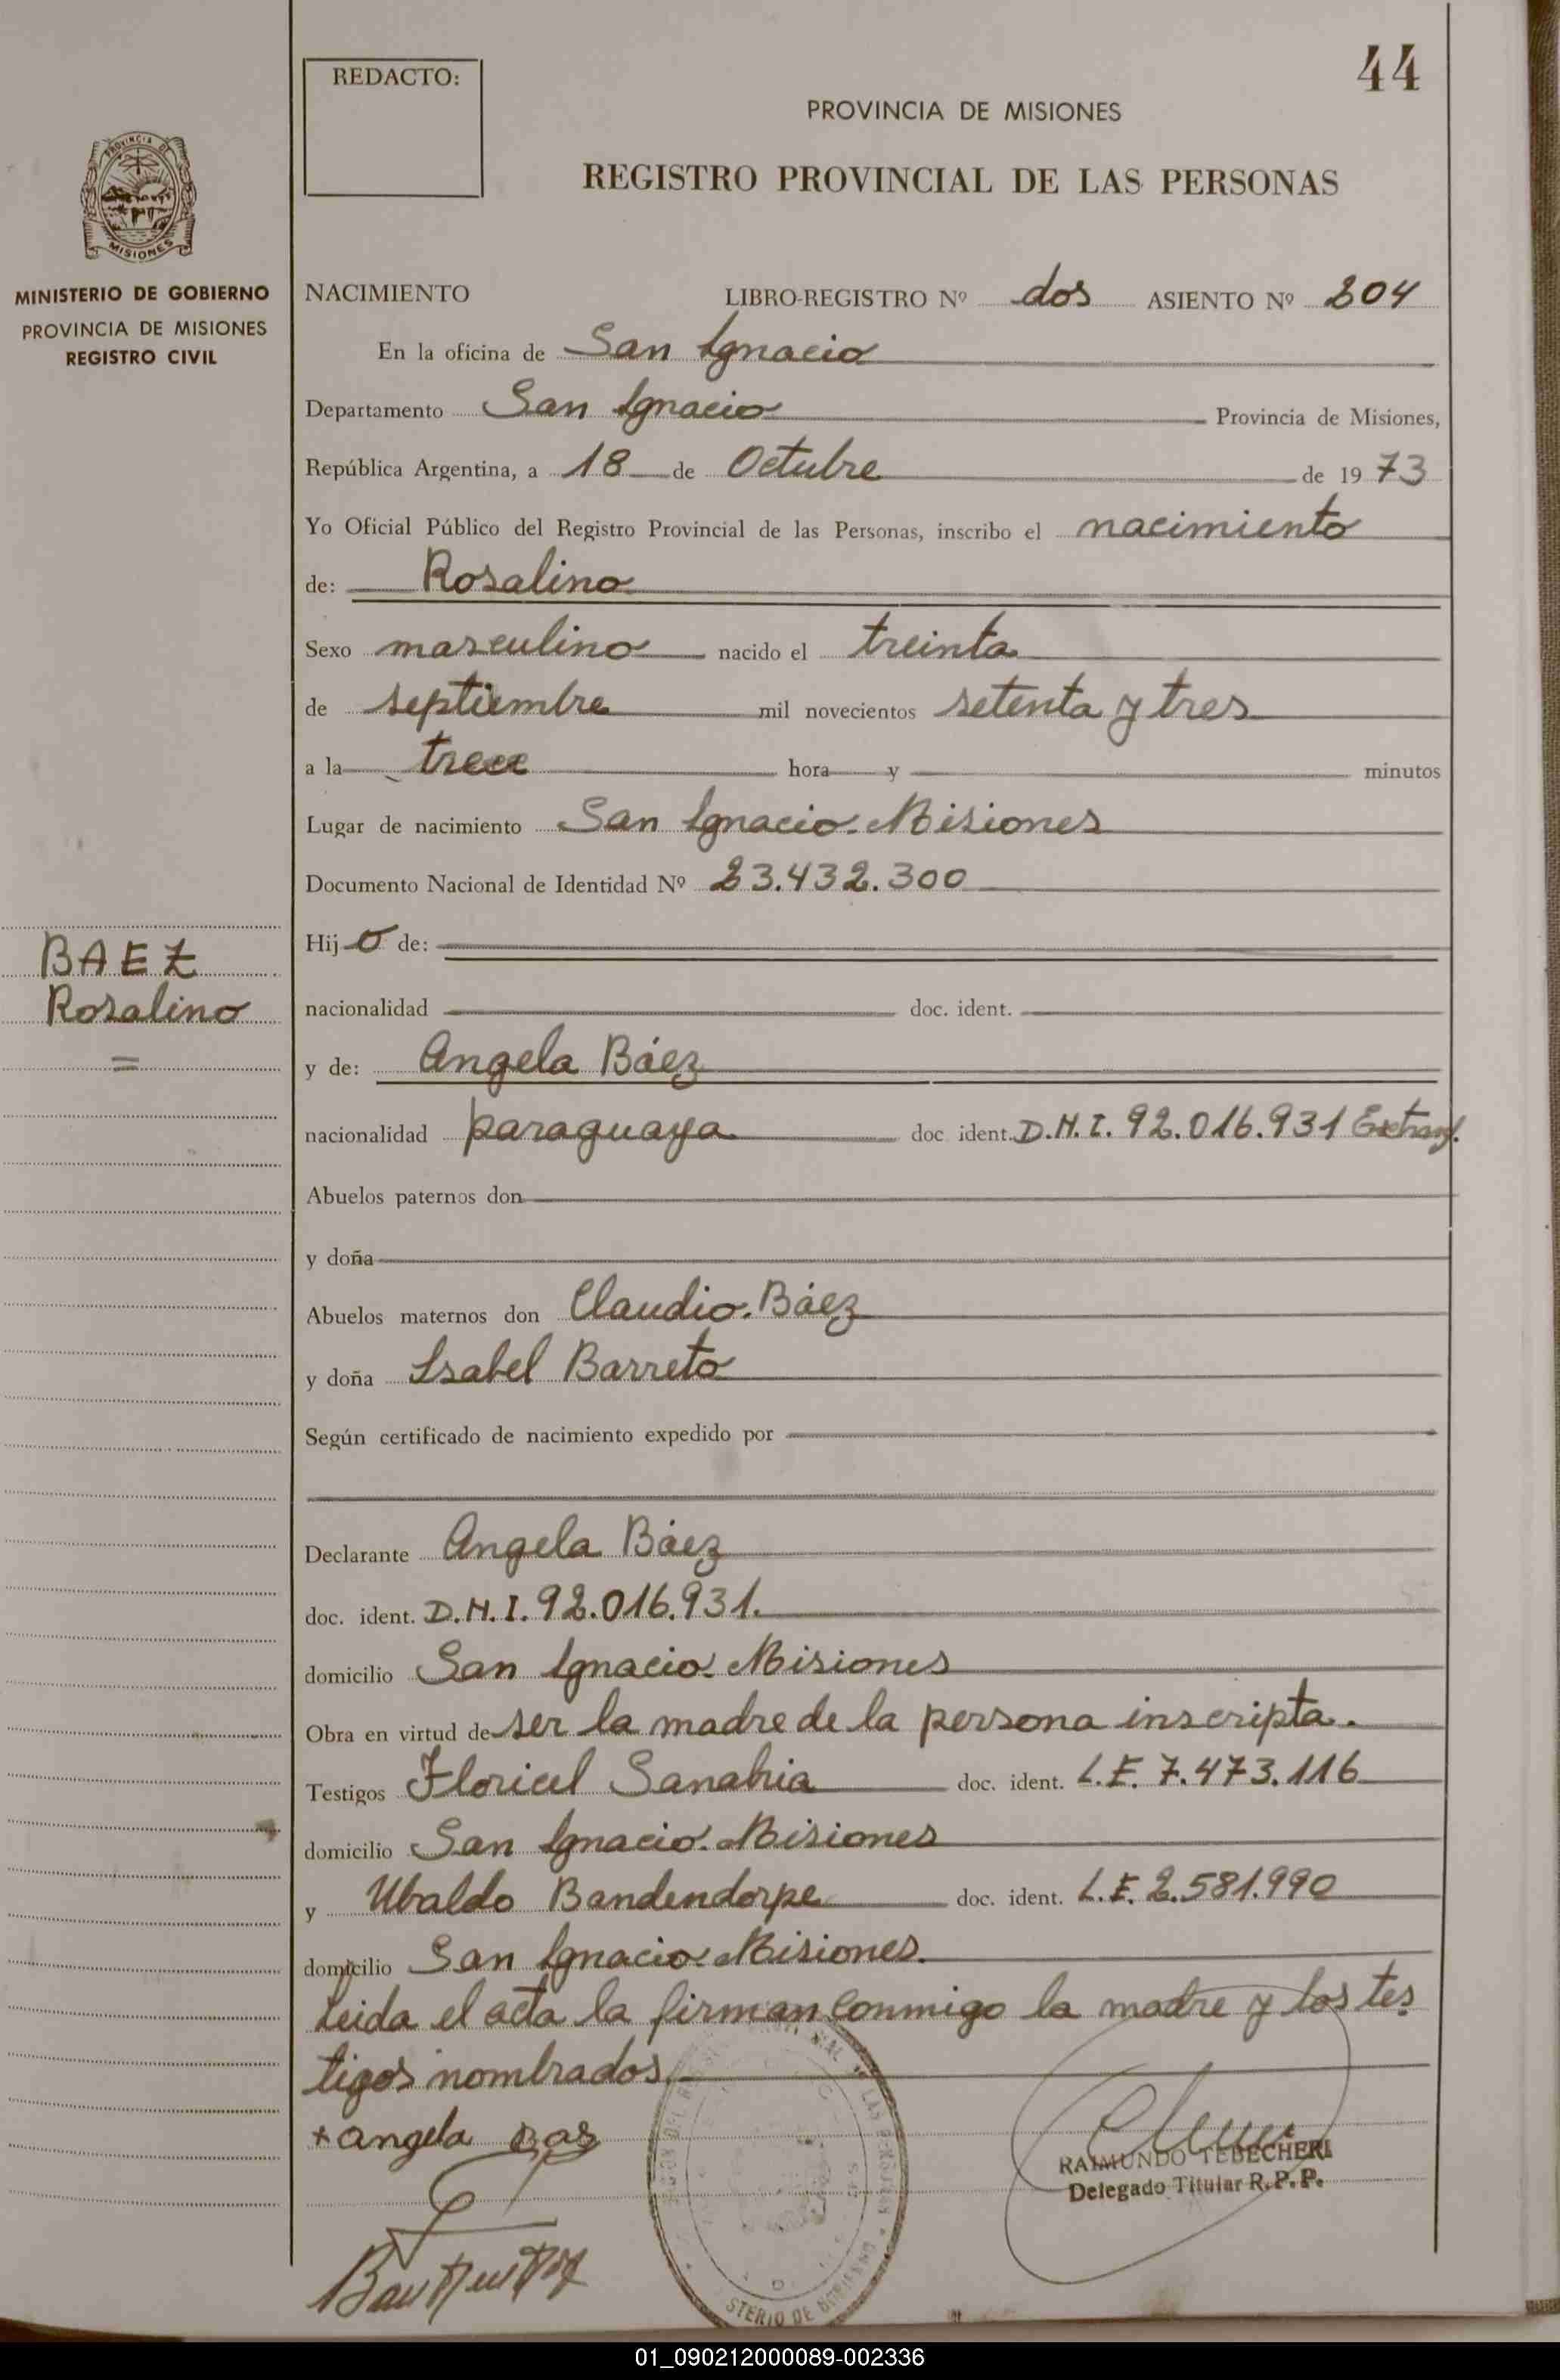 44
REDACTO:
PROVINCIA DE MISIONES
REGISTRO PROVINCIAL DE LAS PERSONAS
PROVINCIA DE
MISIONES
MINISTERIO DE GOBIERNO
PROVINCIA DE MISIONES
REGISTRO CIVIL
BAEZ
Rosalino
=
NACIMIENTO LIBRO-REGISTRO Nº dos ASIENTO Nº 204
En la oficina de San Ignacio
Departamento San Ignacio Provincia de Misiones,
República Argentina, a 18 de Octubre de 1973
Yo Oficial Público del Registro Provincial de las Personas, inscribo el nacimiento
de: Rosalino
Sexo masculino nacido el treinta
de septiembre mil novecientos setenta y tres
a la trece hora y minutos
Lugar de nacimiento San Ignacio. Misiones
Documento Nacional de Identidad Nº 23.432.300
Hijo de:
nacionalidad doc. ident.
y de: Angela Báez
nacionalidad paraguaya doc ident. D.N.I. 92.016.931 Extranj.
Abuelos paternos don
y doña
Abuelos maternos don Claudio Báez
y doña Isabel Barreto
Según certificado de nacimiento expedido por
Declarante Angela Báez
doc. ident. D.N.I. 92.016.931.
domicilio San Ignacio. Misiones
Obra en virtud de ser la madre de la persona inscripta.
Testigos Floricel Sanabria doc. ident. L.E. 7.473.116
domicilio San Ignacio. Misiones
y Ubaldo Bandendorpe doc. ident. L.E. 2.581.990
domicilio San Ignacio. Misiones.
Leida el acta la firman conmigo la madre y los tes
tigos nombrados.
+ angela
RAIMUNDO TEBECHERI
Delegado Titular R.P.P.
01_090212000089-002336